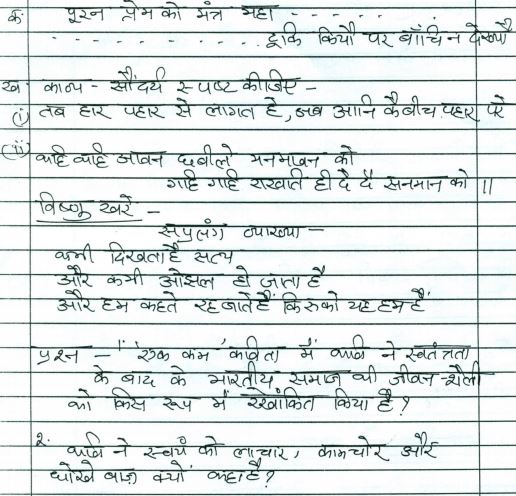 क पूरन प्रेम को मंत्र महा - - - - - -
- - - - - - - - - - - - टूकि कियौ पर बाँचि न देख्यौ
ख काव्य - सौंदर्य स्पष्ट कीजिए -
(i) तब हार पहार से लागत है, अब आनि कै बीच पहार परे
(ii) कहि कहि आवन छबीले मनभावन को
गहि गहि राखति ही दै दै सनमान को ||
विष्णु खरे -
सप्रसंग व्याख्या -
कभी दिखता है सत्य
और कभी ओझल हो जाता है
और हम कहते रह जाते हैं कि रुको यह हम हैं
प्रश्न - 1 'एक कम' कविता में कवि ने स्वतंत्रता
के बाद के भारतीय समाज की जीवन-शैली
को किस रूप में रेखांकित किया है?
2. कवि ने स्वयं को लाचार, कामचोर और
धोखेबाज़ क्यों कहा है?